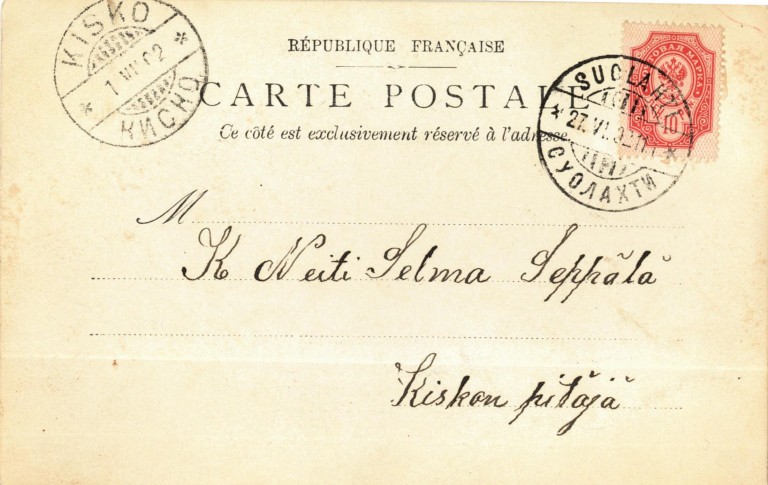 KISKO
1 VII 02
КИСКО
RÉPUBLIQUE FRANÇAISE
CARTE POSTALE
Ce côté est exclusivement réservé à l'adresse.
ОВАЯ МАРКА
10
SUOLAHTI
27. VI. 02
СУОЛАХТИ
M
K Neiti Selma Seppälä
Kiskon pitäjä